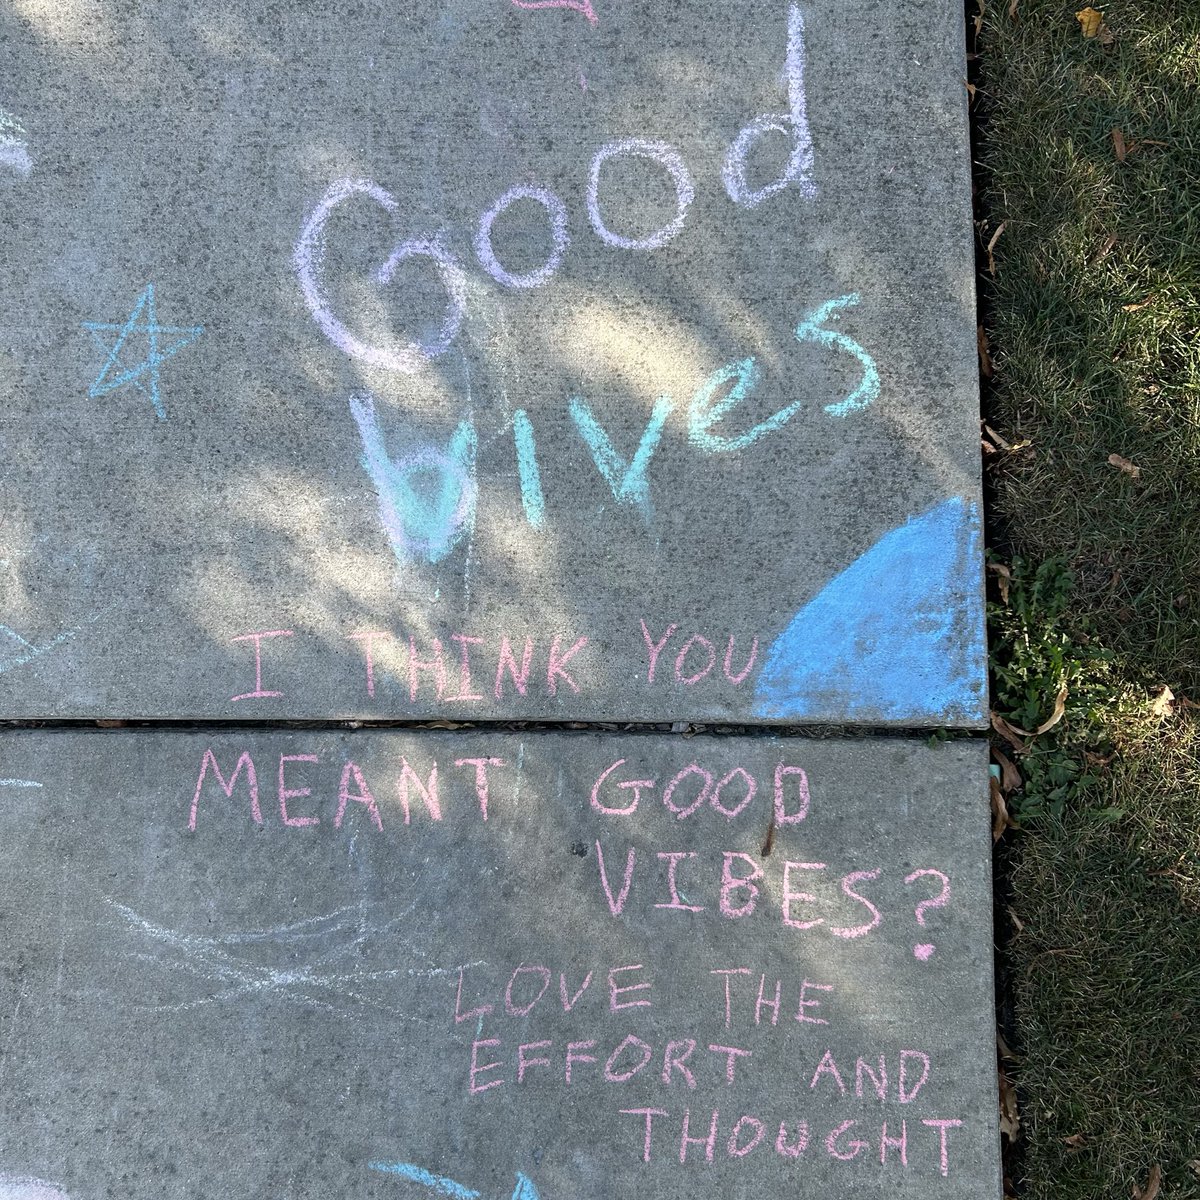 Good
Vives
I THINK YOU
MEANT GOOD
VIBES?
LOVE THE
EFFORT AND
THOUGHT